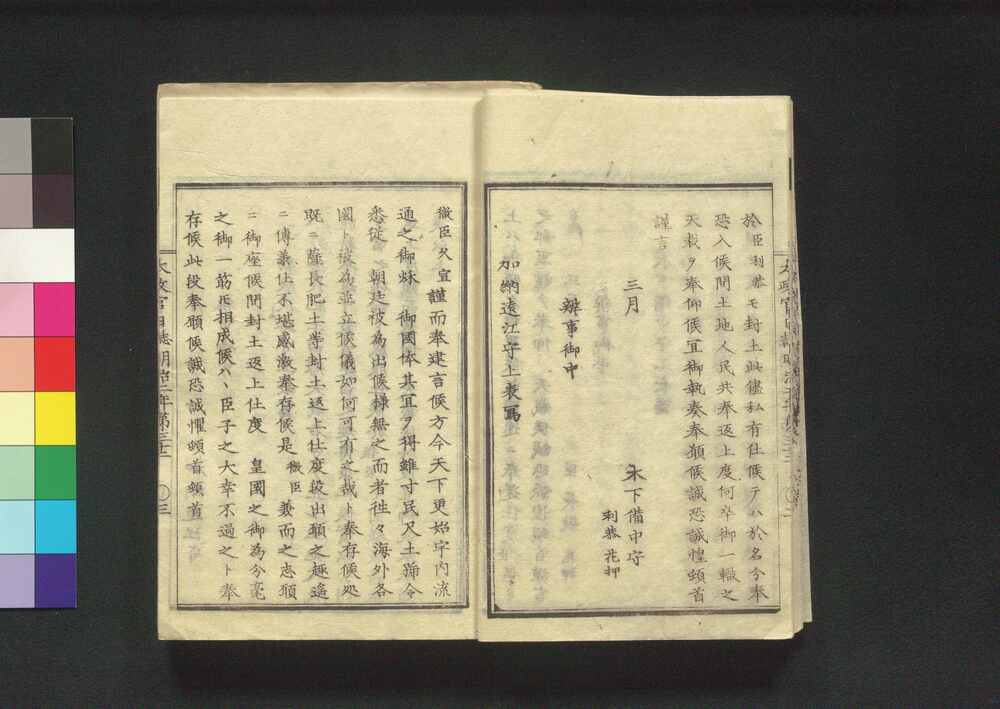 於 臣利恭 モ封土此儘私有仕候テハ於名今奉
恐入候間土地人民共奉返上度何卒御一轍之
天裁ヲ奉仰候宜御執奏奉願候誠恐誠惶頓首
謹言
三月 木下備中守
利恭 花押
辨事御中
加納遠江守上表寫
微臣久宜謹而奉建言候方今天下更始宇内流
通之御秌 御國体其宜ヲ得雖寸民尺土號令
悉従 朝廷被為出候様無之而者徃々海外各
國ト被為並立候儀如何可有之哉ト奉存候処
既ニ薩長肥土等封土返上仕度段出願之趣遙
ニ傳兼仕不堪感激奉存候是 微臣 兼而之志願
ニ御座候間封土返上仕度 皇國之御為今毫
之御一筋氏相成候ハヽ臣子之大幸不過之ト奉
存候此段奉願候誠恐誠懼頓首頓首
太政官日誌明治二年第三十三 〇三